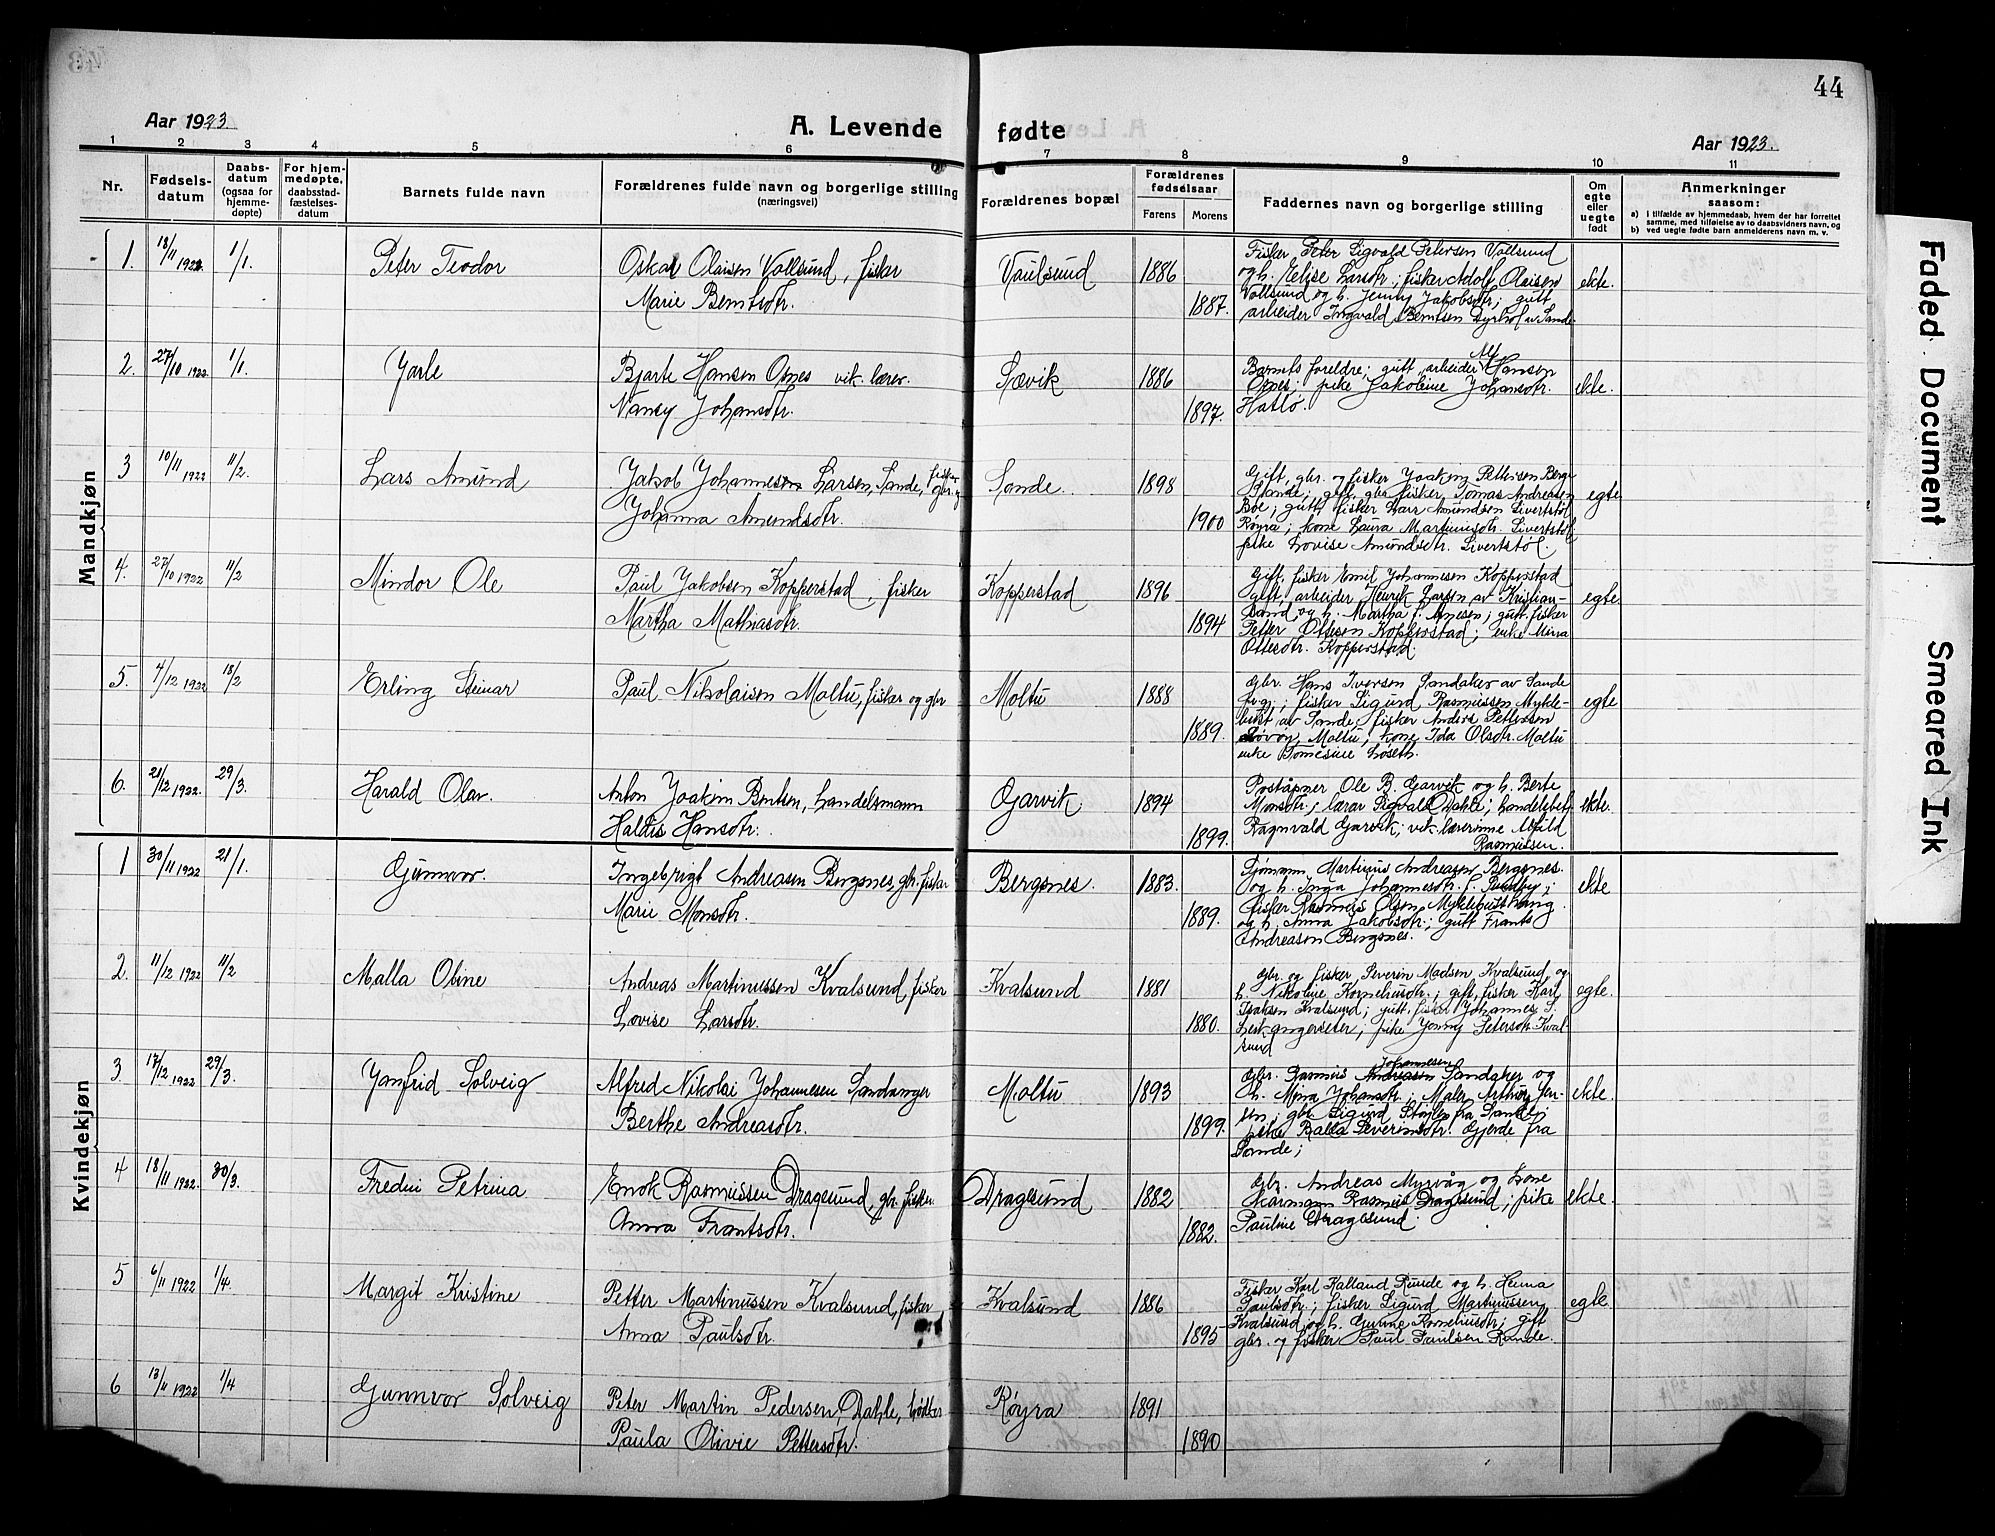 44
Aar 1923.
A. Levende fødte
Aar 1923.
1 2 3 4 5 6 7 8 9 10 11
Nr.
Fødsels-
datum
Daabs-
datum
(ogsaa for
hjemme-
døpte)
For hjem-
medøpte,
daabsstad-
fæstelses-
datum
Barnets fulde navn
Forældrenes fulde navn og borgerlige stilling
(næringsvei)
Forældrenes bopæl
Forældrenes
fødselsaar
Farens Morens
Faddernes navn og borgerlige stilling
Om
egte
eller
uegte
født
Anmerkninger
saasom:
a) i tilfælde av hjemmedaab, hvem der har forrettet
samme, med tilføielse av to daabsvidners navn, og
b) ved uegte fødte barn anmelderens navn m. v.
Mandkjøn
1. 18/11 1922. 1/1. Peter Teodor
Oskar Olaisen Vollsund, fisker
Marie Berntsdtr.
Vaulsund 1886
1887.
Fisker Peter Sigvald Petersen Vollsund
og h. Elise Larsdtr; fisker Adolf Olaisen
Vollsund og h. Jenny Jakobsdtr; gutt
arbeider Ingvald Berntsen Dyrhol av Sande
ekte.
2. 27/10 1922 1/1. Jarle
Bjarte Hansen Osnes vik. lærer.
Nancy Johansdtr.
Sævik 1886
1897.
Barnets foreldre; gutt, arbeider Alf Hansen
Osnes; pike Jakobine Johansdtr.
Hatlø.
ekte.
3 10/11 1922 11/2. Lars Amund
Jakob Johannesen Larsen, Sande, fisker gbr.
Johanna Amundsdtr.
Sande. 1898
1900
Gift, gbr. og fisker Joakim Pettersen Berge
Sande; gift, gbr. fisker Tomas Andreasen
Boe; gutt, fisker Lars Amundsen Livertstøl
Røyra; kone Laura Martinusdtr. Livertstøl
pike Lovise Amundsdtr. Livertstøl.
egte
4. 27/10 1922 11/2 Mindor Ole
Paul Jakobsen Kopperstad, fisker
Martha Mathiasdtr.
Kopperstad 1896
1894
Gift, fisker Emil Johannesen Kopperstad
gift, arbeider Henrik Larsen av Kristian-
sand og h. Martha f. Arnesen; gutt fisker
Petter Ottesen Kopperstad; enke Mina
Ottesdtr. Kopperstad.
egte.
5. 4/12 1922 18/2 Erling Steinar
Paul Nikolaisen Moltu, fisker og gbr
Moltu 1888
1889.
Gbr. Hans Iversen Sandaker av Sande
fisker Sigurd Rasmussen Mykle-
bust av Sande, fisker Anders Pettersen
Moltu; kone Ida Olsdtr. Moltu
enke Tomesine Løseth.
egte
6. 21/12 1922. 29/3. Harald Olav.
Anton Joakim Berntsen, handelsmann
Haldis Hansdtr.
Gjarvik 1894
1899.
Poståpner Ole B. Gjarvik og h. Berte
Monsdtr; lærar Sigvald Dahle; handelsbetj
Ragnvald Garvik; vik. lærerinne Alfild
Rasmussen.
ekte.
Kvindekjøn
1 30/11 1922 21/1. Gunnvor.
Ingebrigt Andreasen Bergsnes, gbr. fisker
Marie Monsdtr.
Bergsnes. 1883.
1889.
Sjømann Martinus Andreasen Bergsnes.
og h. Inga Johannesdtr. f. Sundby;
fisker Rasmus Olsen Myklebusthaug
og h. Anna Jakobsdtr; gutt Frants
Andreasen Bergsnes.
ekte
2. 11/12 1922 11/2 Malla Oline
Andreas Martinussen Kvalsund, fisker
Lovise Larsdtr.
Kvalsund 1881
1880.
Gbr. og fisker Severin Madsen Kvalsund og
h. Nikoline Korneliusdtr.; gift, fisker Karl
Isaksen Kvalsund; gutt, fisker Johannes S.
Leikangerseter; pike Jenny Petersdtr. Kval-
sund
egte.
3 17/12 1922 29/3. Janfrid Solveig
Alfred Nikolai Johannesen Sandanger
Berthe Andreasdtr.
Moltu 1893
1899.
Gbr. Rasmus Johannesen Sandaker og
h. Mina Johansdtr.; Maler Arthur Iver-
sen; gbr Sigurd Støylen fra Sande;
pike Ralla Severinsdtr. Gjerde fra
Sande;
ekte.
4 18/11 1922. 30/3. Fredrii Petrina
Enok Rasmussen Dragesund, gbr. fisker
Anna Frantsdtr.
Dragesund 1882
1882.
Gbr. Andreas Myrvåg og kone
Rasmus Dragesund; pike
Pauline Dragesund.
ekte.
5 6/11 1922 1/4. Margit Kristine
Petter Martinussen Kvalsund, fisker
Anna Paulsdtr.
Kvalsund 1886
1895
Fisker Karl Kalland Runde og h. Henna
Paulsdtr; fisker Sigurd Martinussen
Kvalsund og h. Gunne Korneliusdtr; gift
gbr. og fisker Paul Paulsen Runde.
egte.
6 13/11 1922 1/4 Gunnvor Solveig
Peter Martin Pedersen Dahle, bødker
Paula Olivie Pettersdtr.
Røyra 1891
1890
Faded Document
Smeared Ink